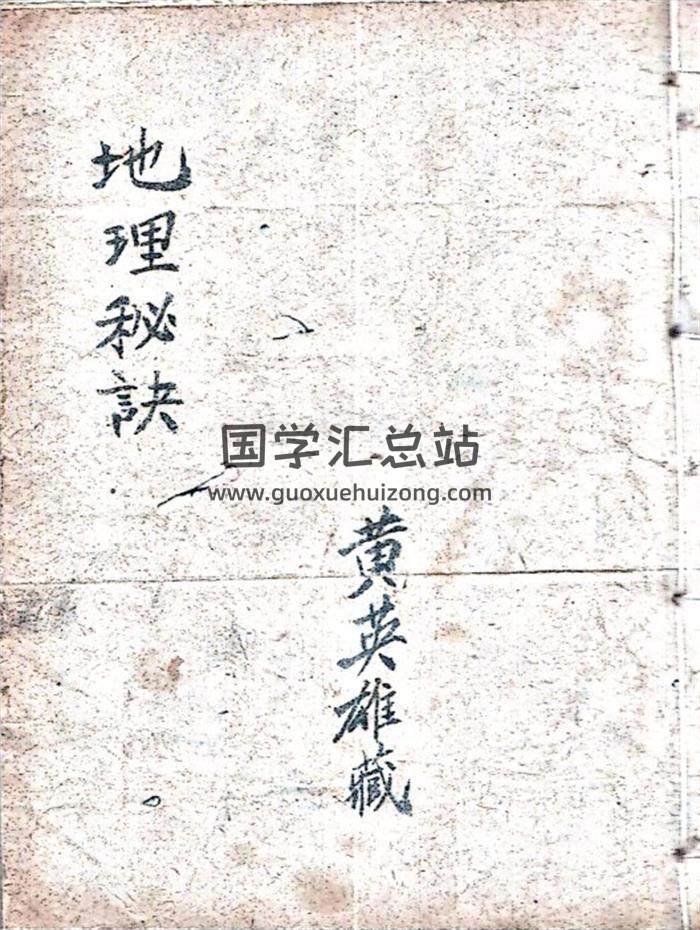 地理秘訣
国学汇总站
www.guoxuehuizong.com
黄英雄藏